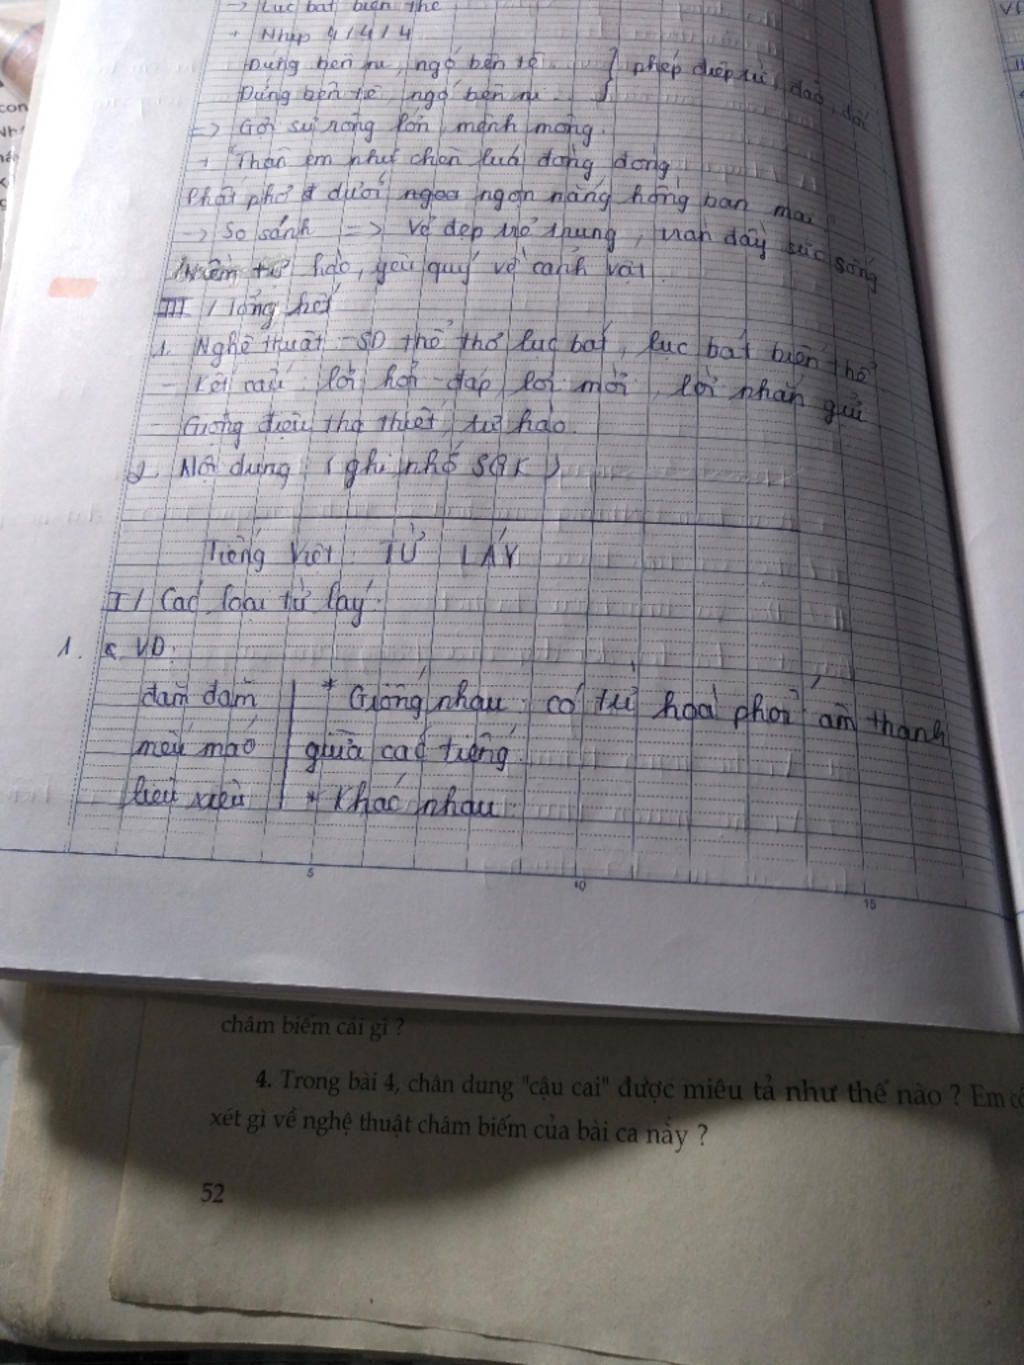 -> Lục bát biến thể
+ Nhịp 4/4/4
Đứng bên ni, ngó bên tê } phép điệp từ, đảo, đối
Đứng bên tê, ngó bên ni.
=> Gợi sự rộng lớn, mênh mông.
+ "Thân em như chẽn lúa đòng đòng
Phất phơ dưới ngọn nắng hồng ban mai
-> So sánh => vẻ đẹp trẻ trung, tràn đầy sức sống
Niềm tự hào, yêu quý về cảnh vật
III / Tổng kết
1. Nghệ thuật - SD thể thơ lục bát, lục bát biến thể
- Kết cấu: lời hỏi - đáp, lời mời, lời nhắn gửi
- Giọng điệu tha thiết, tự hào.
2. Nội dung (ghi nhớ SGK)
Tiếng Việt: TỪ LÁY
I / Các loại từ láy.
1. VD:
đăm đăm | * Giống nhau: có sự hoà phối âm thanh
mếu máo | giữa các tiếng.
liêu xiêu | * Khác nhau:
5 10 15
châm biếm cái gì ?
4. Trong bài 4, chân dung "cậu cai" được miêu tả như thế nào ? Em có
xét gì về nghệ thuật châm biếm của bài ca này ?
52